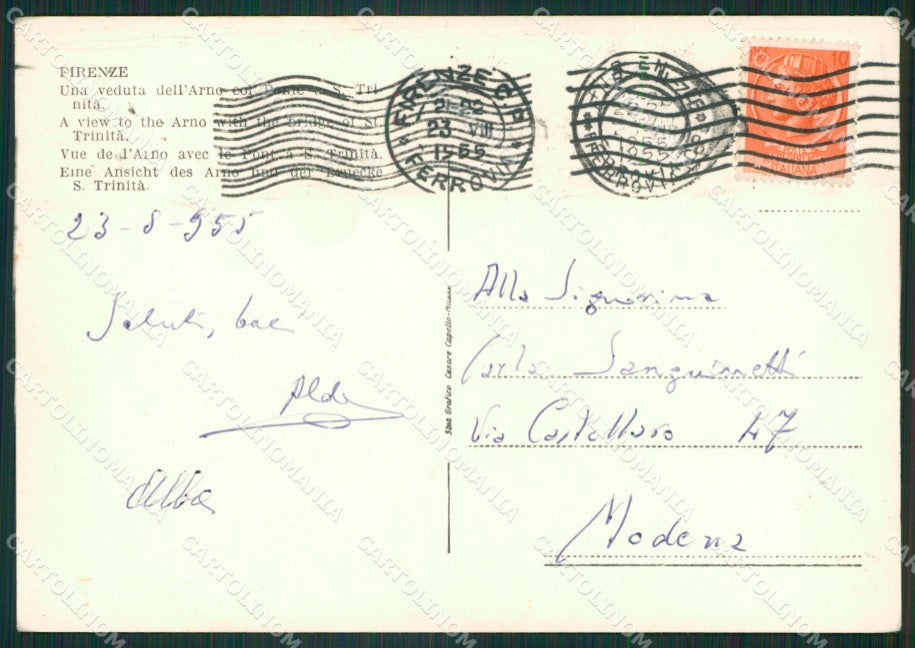 FIRENZE
Una veduta dell'Arno col Ponte a S. Tri
nita.
A view to the Arno with the bridge of St.
Trinità.
Vue de l'Arno avec le Pont à S. Trinità.
Eine Ansicht des Arno und der Bruecke
S. Trinità.
FIRENZE C.P.
23 VIII
1955
FERROVIA
10
ITALIANA
23-8-955
Saluti, baci
Aldo
Alba
Stab. Grafico Cesare Capello - Milano
Alla Signorina
Carla Sanguinetti
Via Castellaro 47
Modena
CARTOLINOMANIA